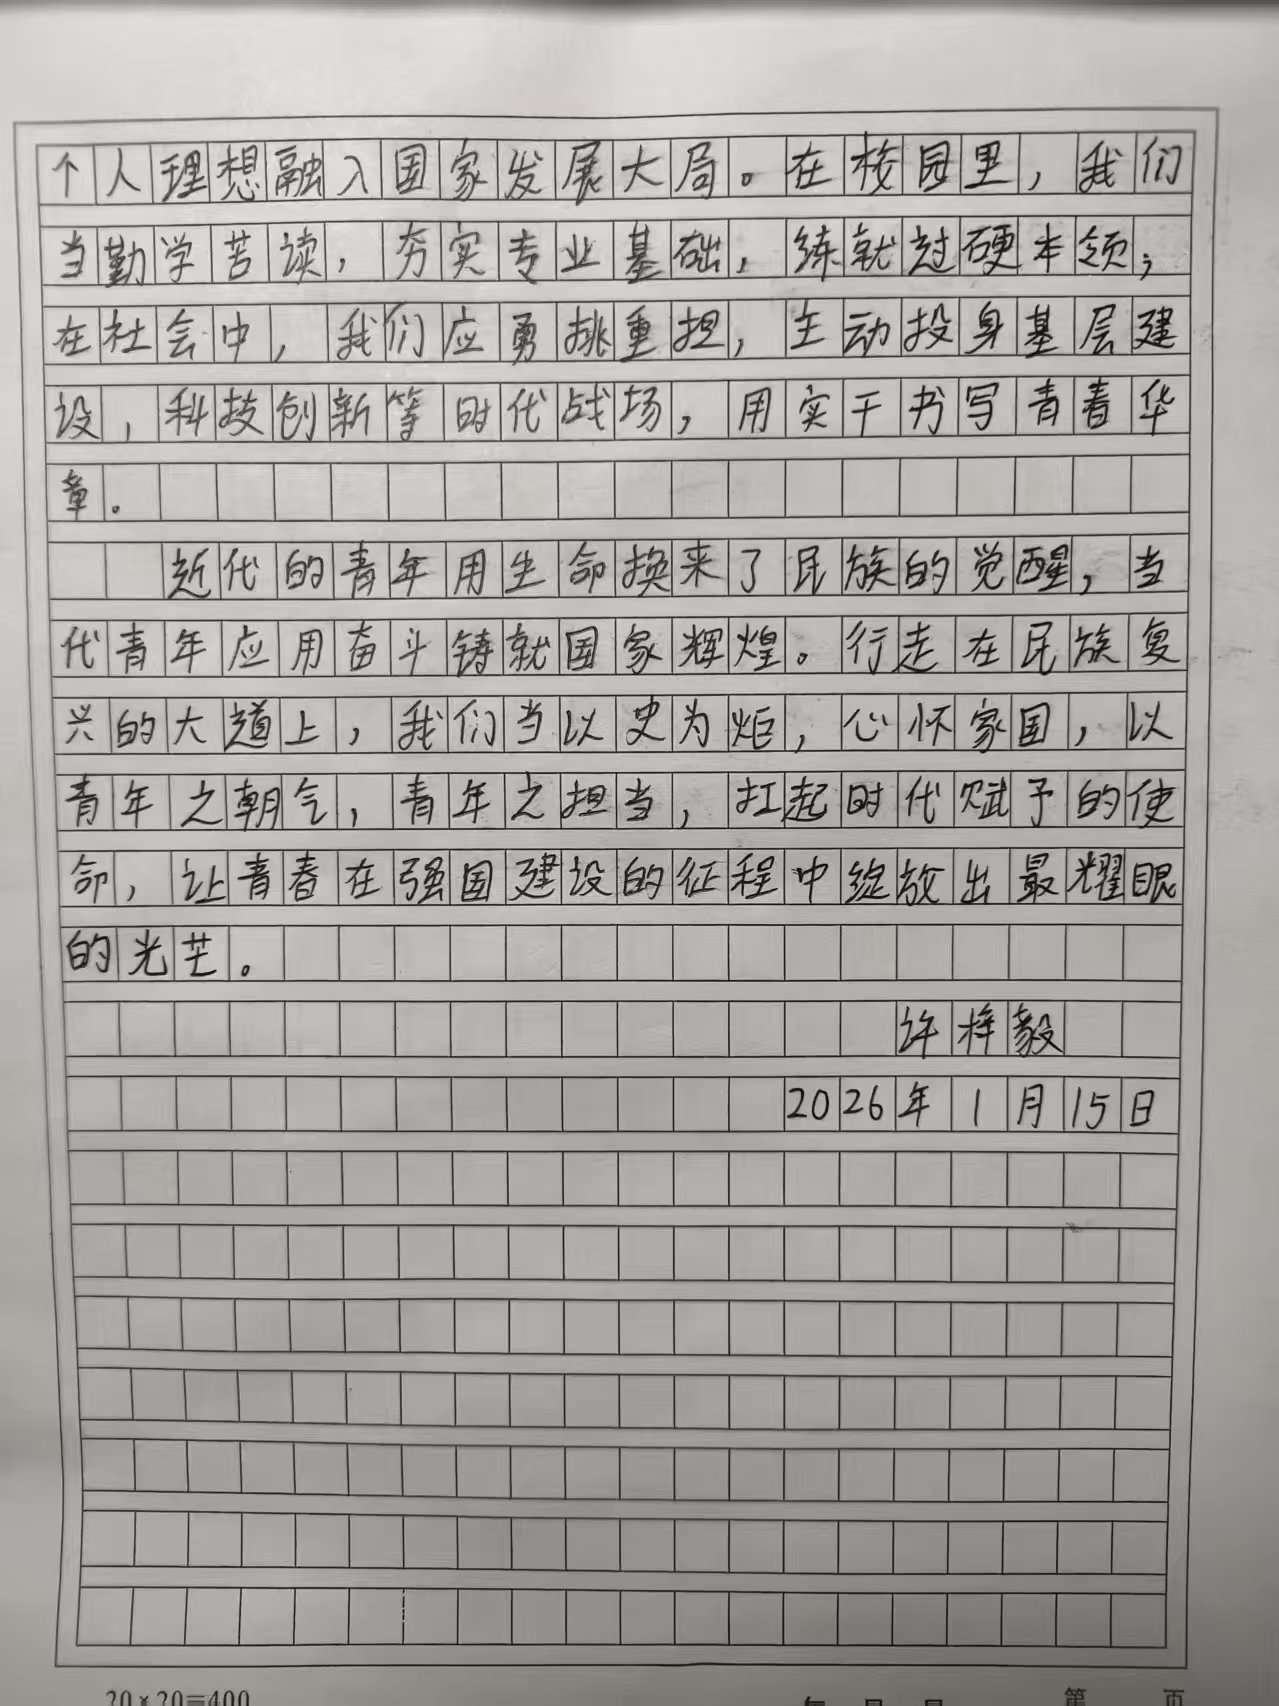 个人理想融入国家发展大局。在校园里，我们
当勤学苦读，夯实专业基础，练就过硬本领；
在社会中，我们应勇挑重担，主动投身基层建
设，科技创新等时代战场，用实干书写青春华
章。
近代的青年用生命换来了民族的觉醒，当
代青年应用奋斗铸就国家辉煌。行走在民族复
兴的大道上，我们当以史为炬，心怀家国，以
青年之朝气，青年之担当，扛起时代赋予的使
命，让青春在强国建设的征程中绽放出最耀眼
的光芒。
许梓毅
2026年1月15日
20×20=400 第 页